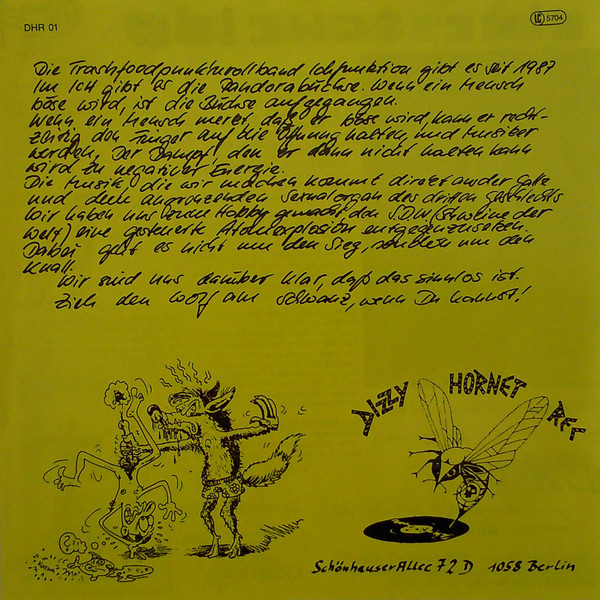 DHR 01
LC 5704
Die Trashfoodpunkunrollband Ichfunktion gibt es seit 1987
Im ICH gibt es die Pandorabüchse. Wenn ein Mensch
böse wird, ist die Büchse aufgegangen.
Wenn ein Mensch merkt, daß er böse wird, kann er recht-
zeitig den Finger auf die Öffnung halten, und Musiker
werden. Der Dampf, den er dann nicht halten kann
wird zu negativer Energie.
Die Musik, die wir machen kommt direkt aus der Galle
und dem angrenzenden Sexualorgan des dritten Geschlechts
Wir haben uns zum Hobby gemacht, den S.D.W (Schweine der
Welt) eine gesteuerte Atomexplosion entgegenzusetzen.
Dabei geht es nicht um den Sieg, sondern um den
Knall.
Wir sind uns darüber klar, daß das sinnlos ist.
Zieh den Wolf am Schwanz, wenn Du kannst!
DIZZY HORNET REC
SchönhauserAllee 72 D 1058 Berlin